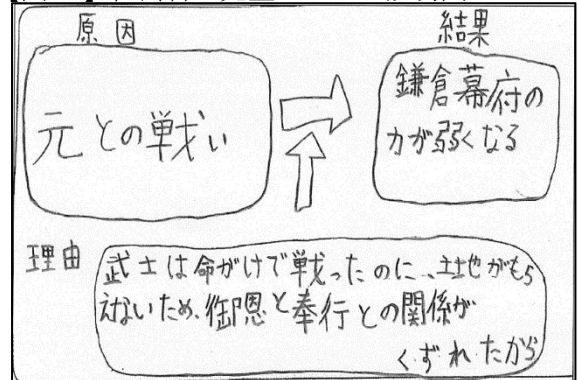 原因
元との戦い
結果
鎌倉幕府の
力が弱くなる
理由
武士は命がけで戦ったのに、土地がもら
えないため、御恩と奉行との関係が
くずれたから